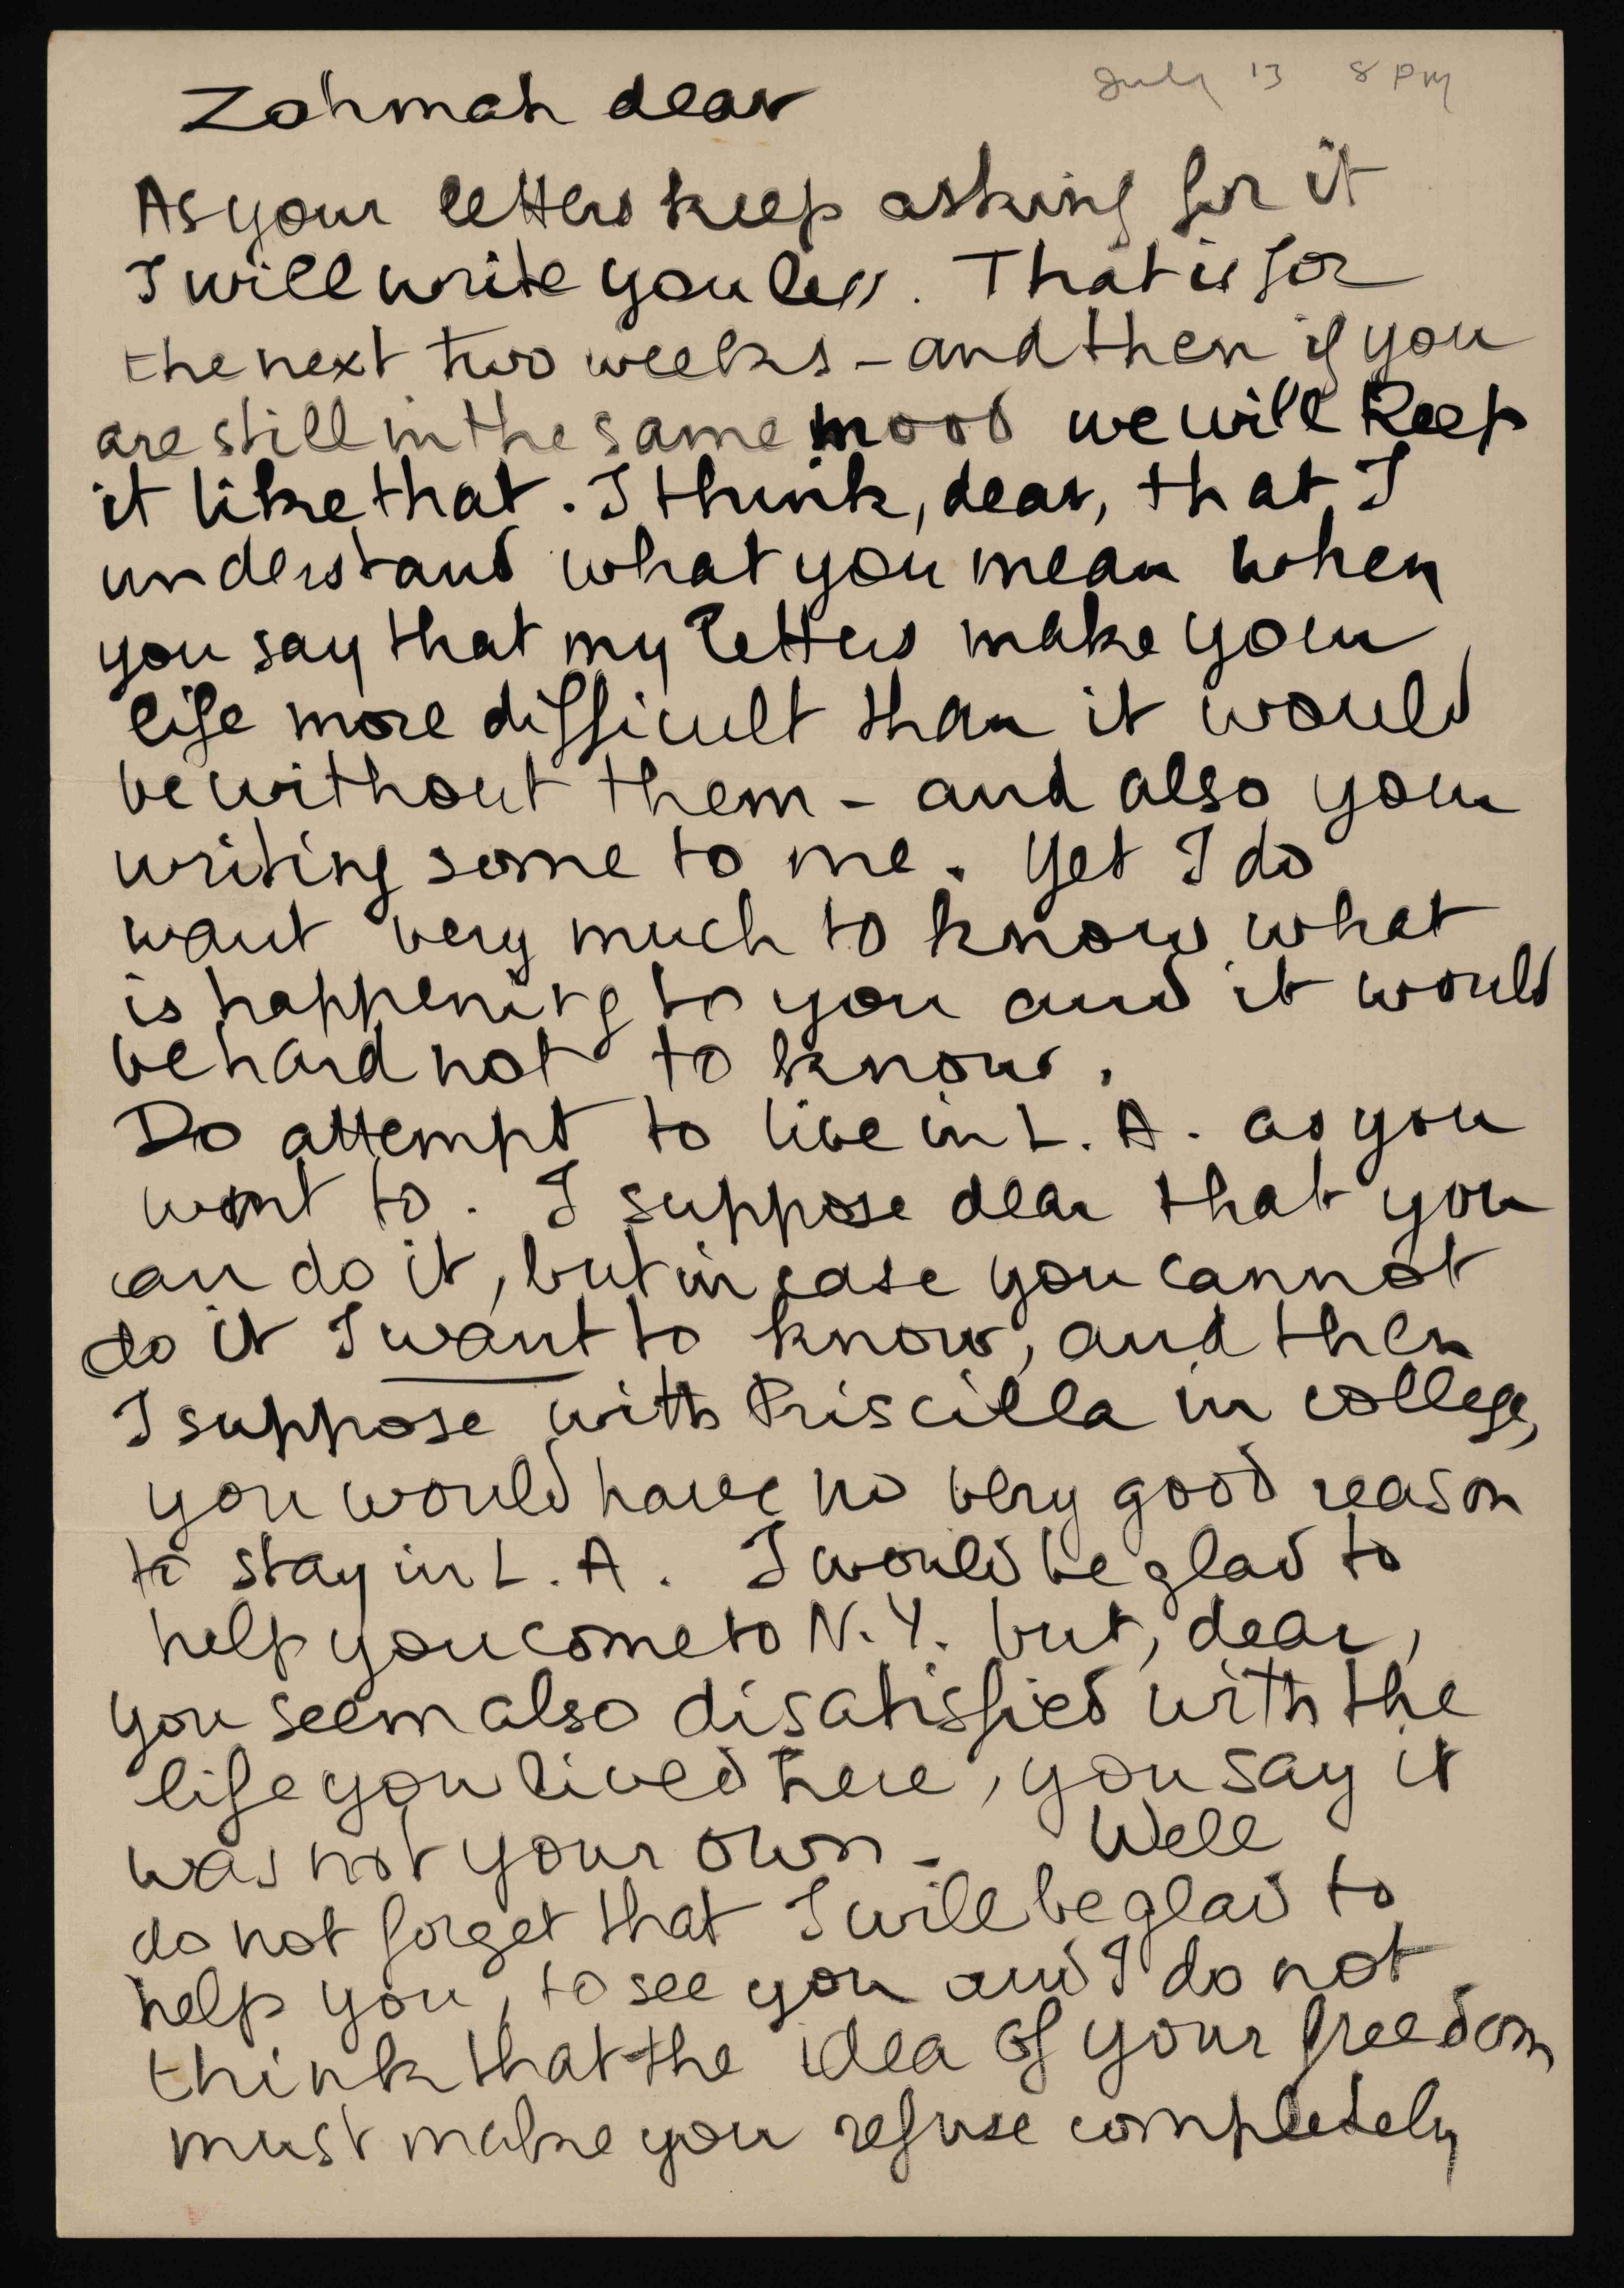 July 13 8 PM
Zohmah dear
As your letters keep asking for it
I will write you less. That is for
the next two weeks - and then if you
are still in the same mood we will keep
it like that. I think, dear, that I
understand what you mean when
you say that my letters make your
life more difficult than it would
be without them - and also your
writing some to me. Yet I do
want very much to know what
is happening to you and it would
be hard not to know.
Do attempt to live in L. A. as you
want to. I suppose dear that you
can do it, but in case you cannot
do it I want to know, and then
I suppose with Priscilla in college,
you would have no very good reason
to stay in L. A. I would be glad to
help you come to N. Y. but, dear,
you seem also disatisfied with the
life you lived here, you say it
was not your own - Well
do not forget that I will be glad to
help you, to see you and I do not
think that the idea of your freedom
must make you refuse completely